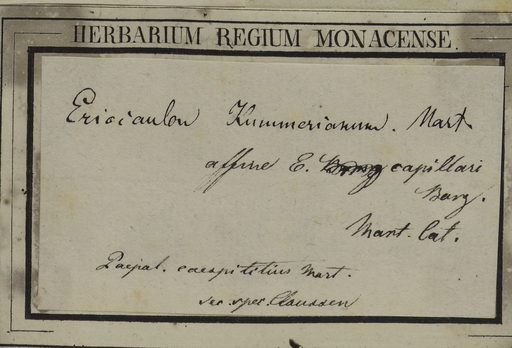 HERBARIUM REGIUM MONACENSE.
Eriocaulon Kummerianum. Mart.
affine E. capillari
Bong.
Mart. Cat.
Paepal. caespititius Mart.
sec. spec. Claussen